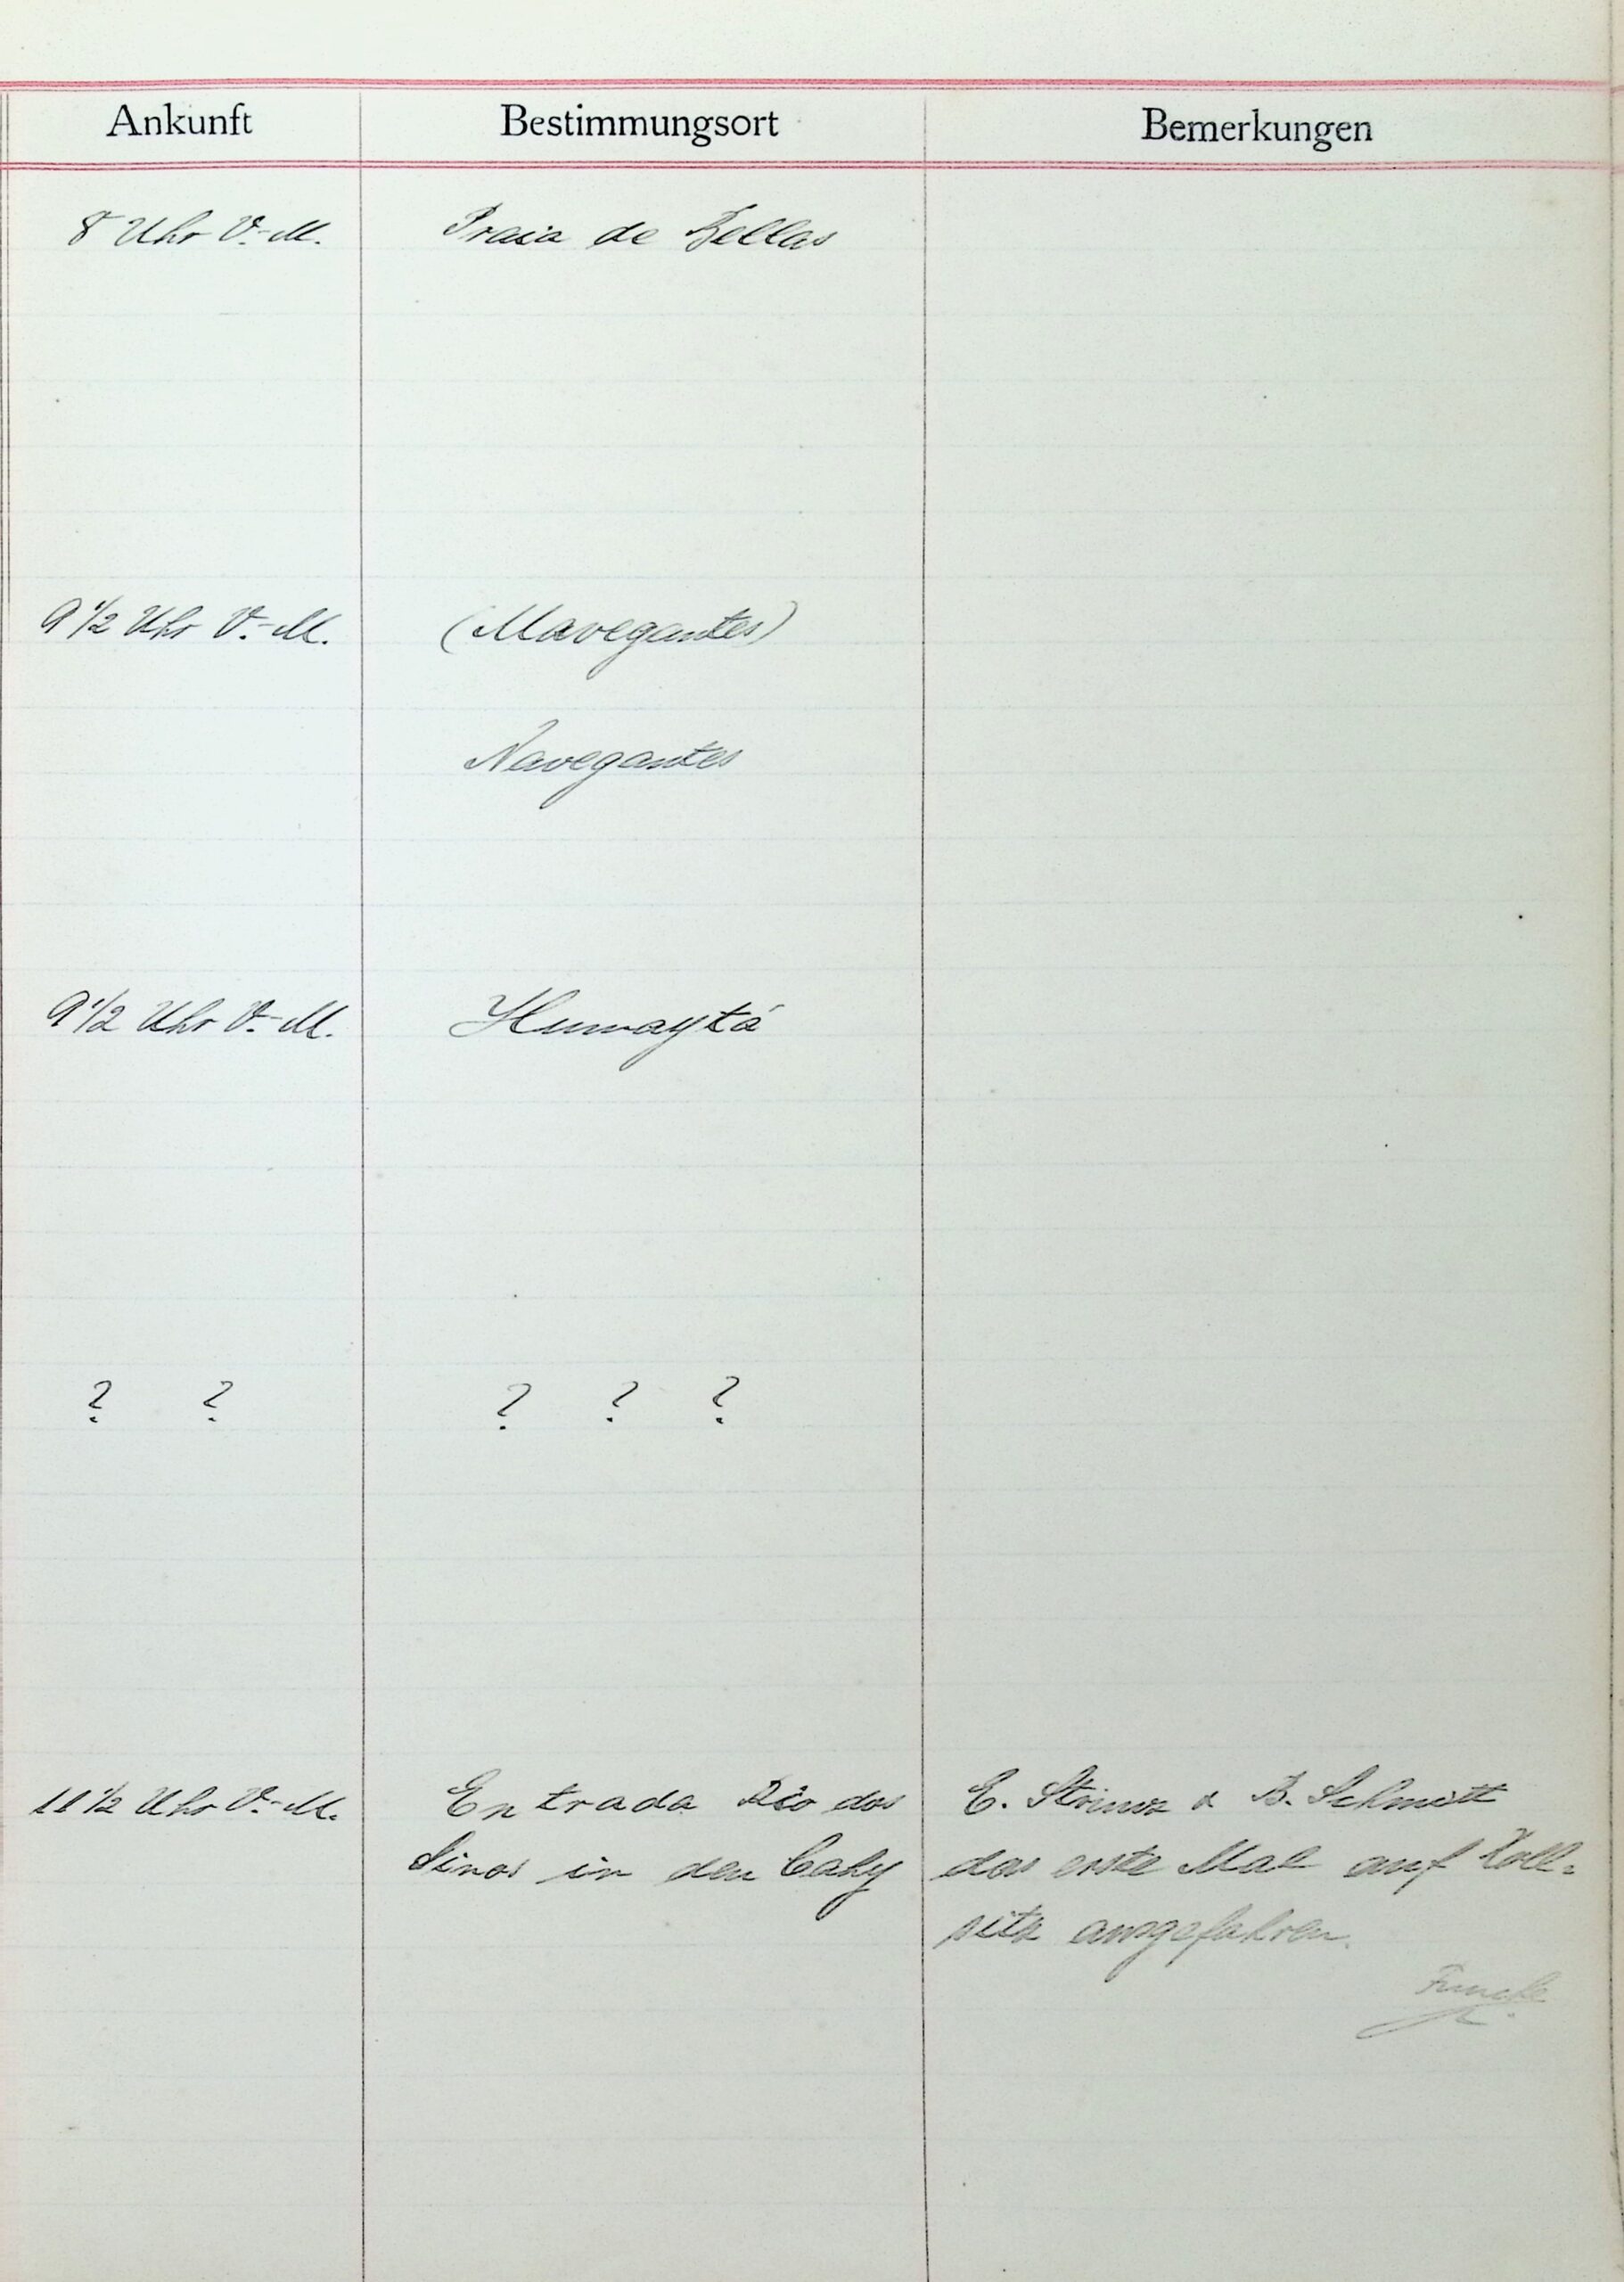 Ankunft Bestimmungsort Bemerkungen
8 Uhr V.-M. Praia de Bellas
9 1/2 Uhr V.-M. (Mavegantes)
Navegantes
9 1/2 Uhr V.-M. Humaytá
? ? ? ? ?
11 1/2 Uhr V.-M. Entrada Rio dos E. & B. Schmitt
Sinos in den Cahy das erste Mal auf Roll-
sitz ausgefahren.
Funcke